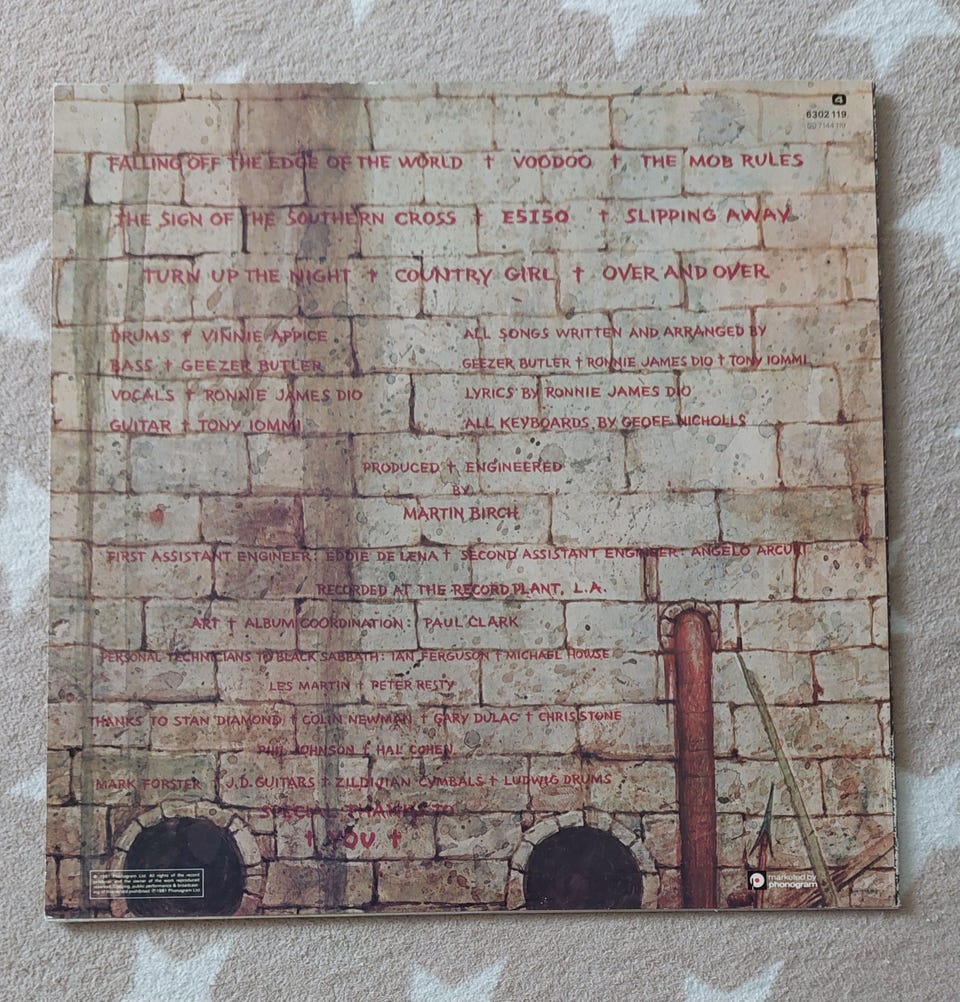 4
6302 119
FALLING OFF THE EDGE OF THE WORLD † VOODOO † THE MOB RULES
THE SIGN OF THE SOUTHERN CROSS † E5150 † SLIPPING AWAY
TURN UP THE NIGHT † COUNTRY GIRL † OVER AND OVER
DRUMS † VINNIE APPICE
BASS † GEEZER BUTLER
VOCALS † RONNIE JAMES DIO
GUITAR † TONY IOMMI
ALL SONGS WRITTEN AND ARRANGED BY
GEEZER BUTLER † RONNIE JAMES DIO † TONY IOMMI
LYRICS BY RONNIE JAMES DIO
ALL KEYBOARDS BY GEOFF NICHOLLS
PRODUCED † ENGINEERED
BY
MARTIN BIRCH
FIRST ASSISTANT ENGINEER: EDDIE DE LENA † SECOND ASSISTANT ENGINEER: ANGELO ARCURI
RECORDED AT THE RECORD PLANT, L.A.
ART † ALBUM COORDINATION: PAUL CLARK
PERSONAL TECHNICIANS TO BLACK SABBATH: IAN FERGUSON † MICHAEL HOWSE
LES MARTIN † PETER RESTY
THANKS TO STAN DIAMOND † COLIN NEWMAN † GARY DULAC † CHRIS STONE
PHIL JOHNSON † HAL COHEN
MARK FORSTER † J.D. GUITARS † ZILDJIAN CYMBALS † LUDWIG DRUMS
SPECIAL THANKS TO
† YOU †
℗ 1981 Phonogram Ltd. All rights of the record
producer and the owner of the work reproduced
reserved. Copying, public performance & broadcast-
ing of this record prohibited. ℗ 1981 Phonogram Ltd.
marketed by
phonogram